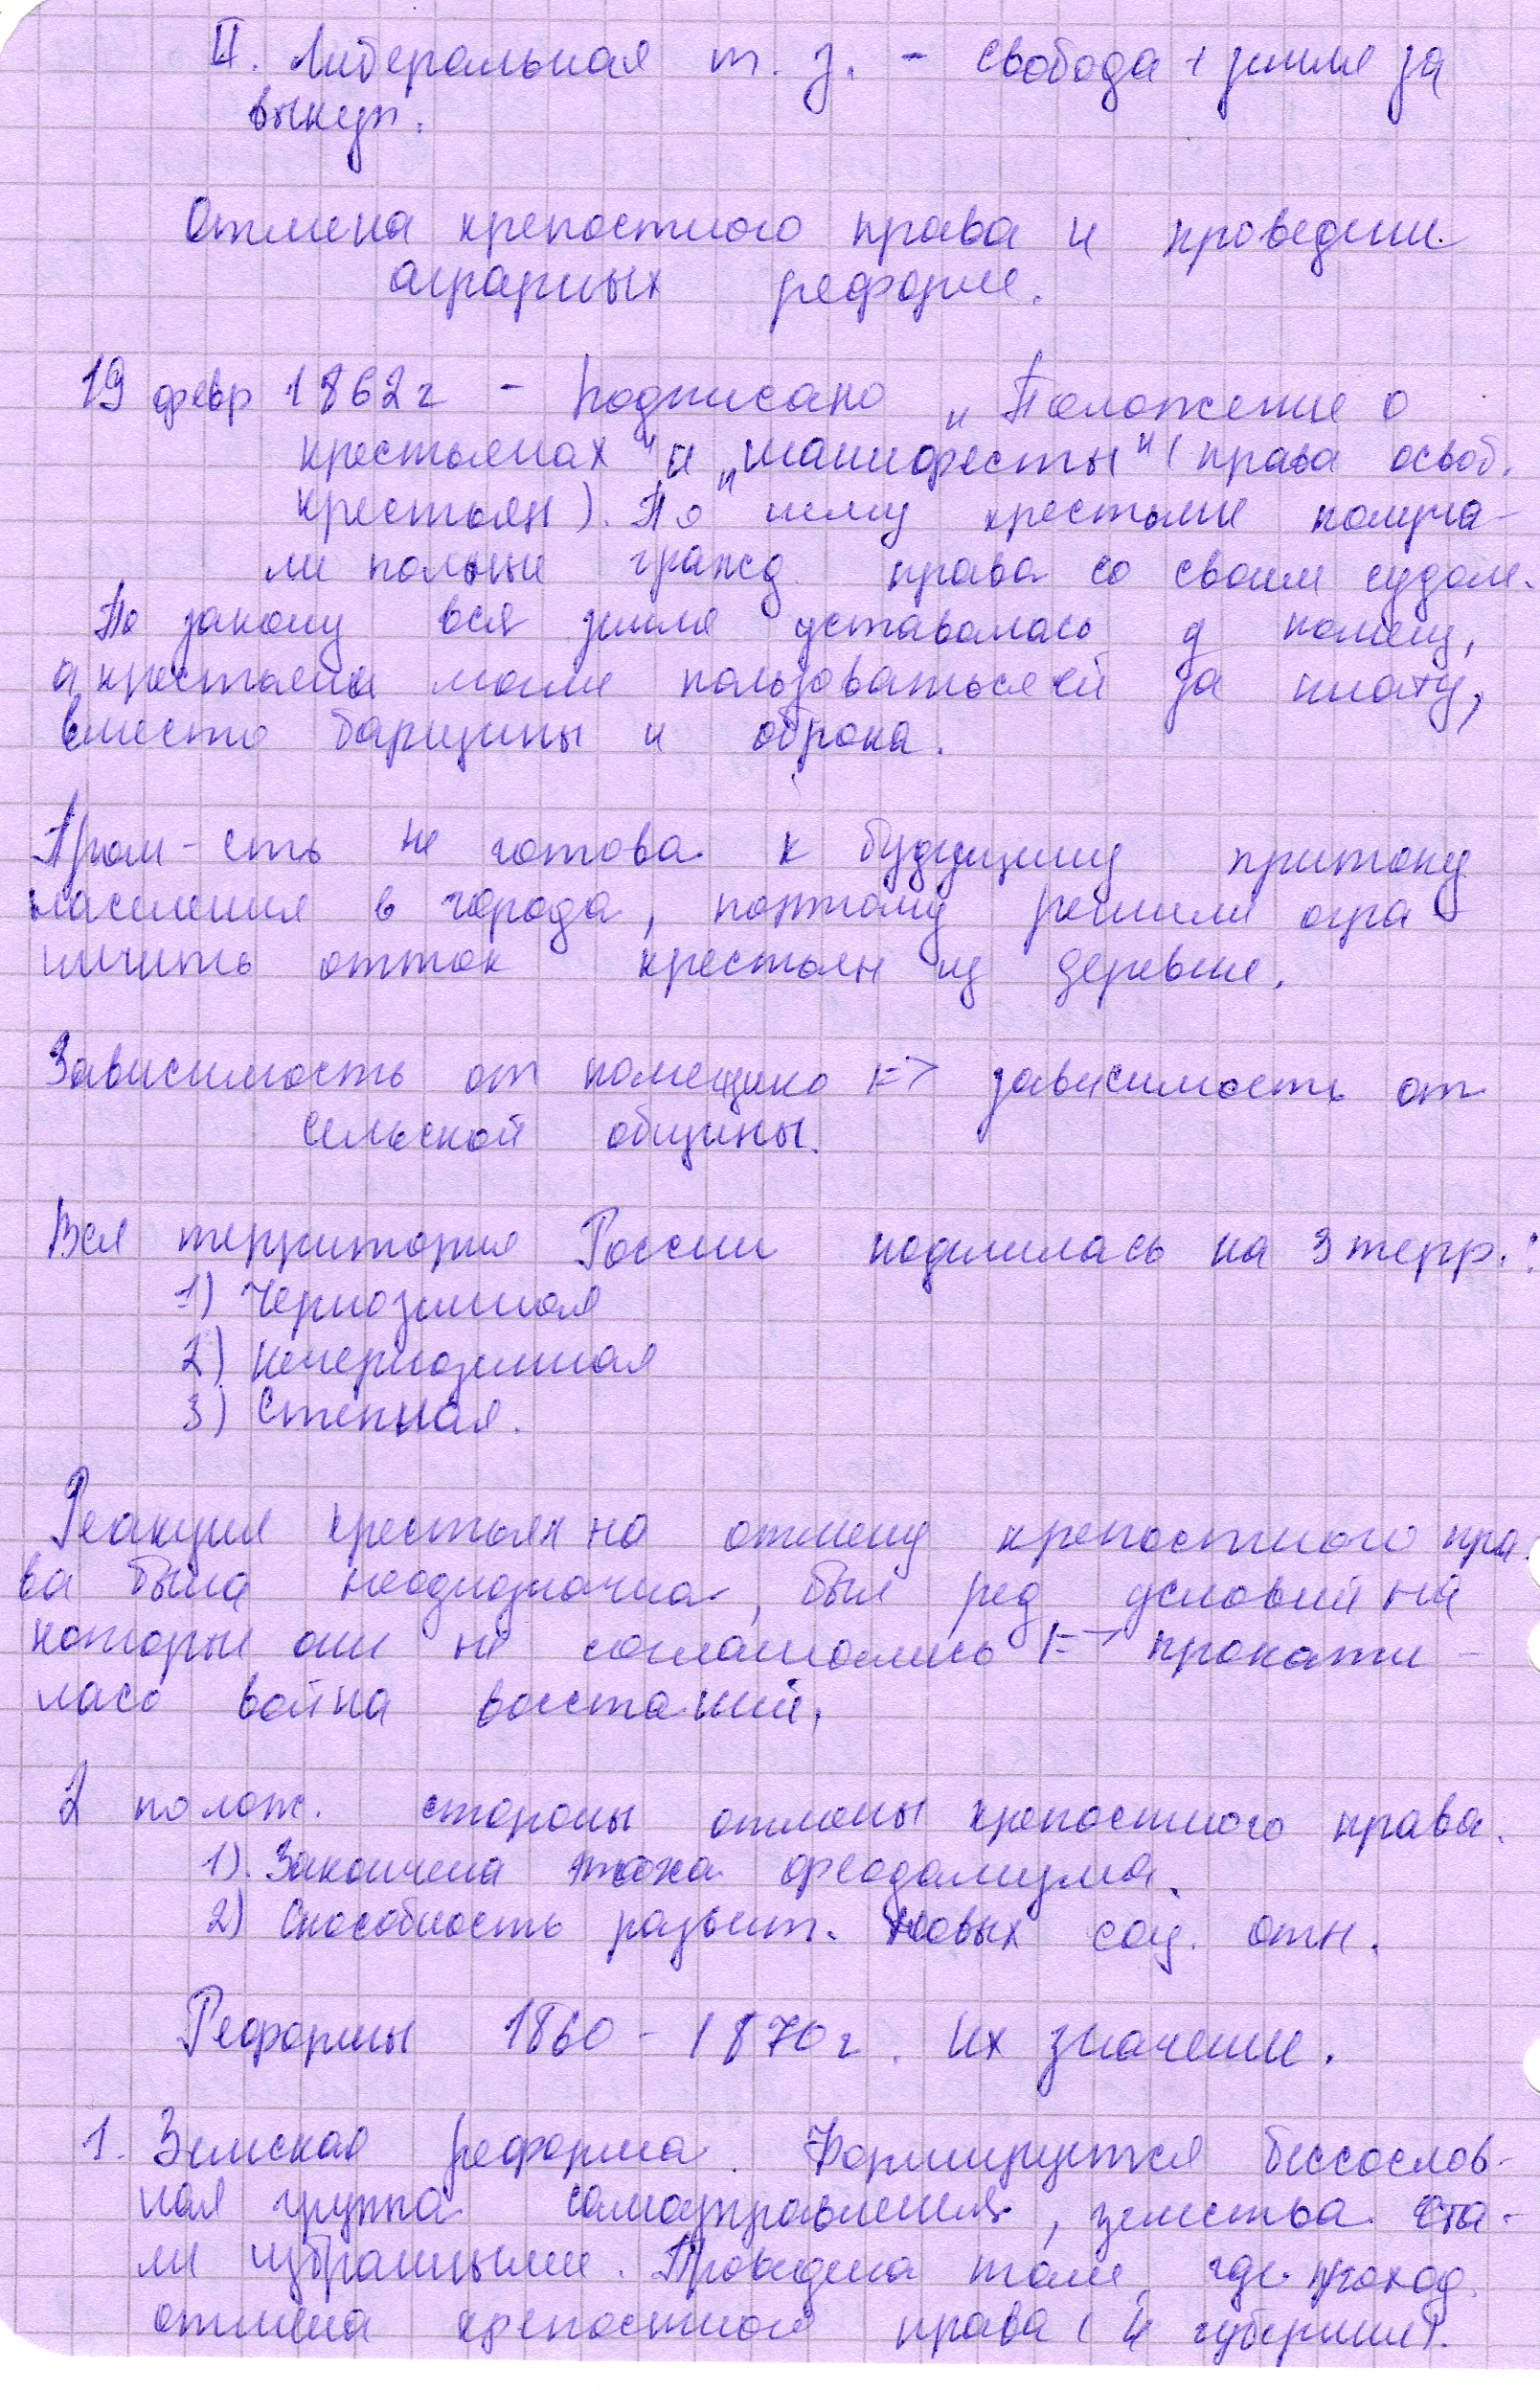 II. Либеральная т. з. - свобода + земля за
выкуп.
Отмена крепостного права и проведение
аграрных реформ.
19 февр 1862 г - Подписано „Положение о
крестьянах" и „манифесты" (права освоб.
крестьян). По нему крестьяне получа-
ли полные гражд права со своим судом.
По закону вся земля уставалась у помещ,
а крестьяне могли пользоваться ей за плату,
вместо барщины и оброка.
Пром-сть не готова к будущему притоку
населения в города, поэтому решили огра
ничить отток крестьян из деревни.
Зависимость от помещика => зависимость от
сельской общины.
Вся территория России поделилась на 3 терр.:
1) Черноземная
2) нечерноземная
3) Степная.
Реакция крестьян на отмену крепостного пра-
ва была неоднозначна, был ряд условий на
которые они не соглашались => прокати-
лась война восстаний.
2 полож. стороны отмены крепостного права.
1). Закончена эпоха феодализма.
2) Способность развит. новых соц. отн.
Реформы 1860 - 1870 г. Их значение.
1. Земская реформа. Формируется бессослов-
ная группа самоуправления, земства ста-
ли избранными. Проведена там, где проход.
отмена крепостного права ( губернии).